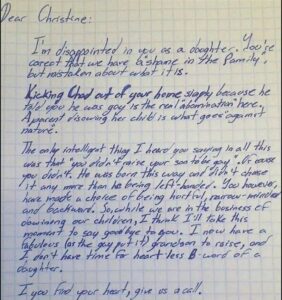 Dear Christine:
I'm disappointed in you as a daughter. You're
corect that we have a "shame in the family",
but mistaken about what it is.
Kicking Chad out of your home simply because he
told you he was gay is the real "abomination" here.
A parent disowning her child is what goes against
nature.
The only intelligent thing I heard you saying in all this
was that "you didn't raise your son to be gay". Of course
you didn't. He was born this way and didn't choose
it any more than he being left-handed. You however,
have made a choice of being hurtful, narrow-minded
and backward. So, while we are in the business of
disowning our children, I think I'll take this
moment to say goodbye to you. I now have a
fabulous (as the gay put it) grandson to raise, and
I don't have time for heart less B-word of a
daughter.
I you find your heart, give us a call.